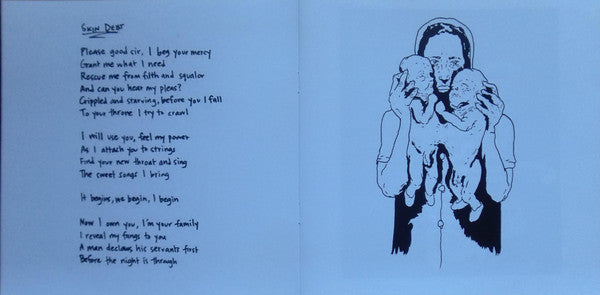 SKIN DEBT
Please good sir, I beg your mercy
Grant me what I need
Rescue me from filth and squalor
And can you hear my pleas?
Crippled and starving, before you I fall
To your throne I try to crawl
I will use you, feel my power
As I attach you to strings
Find your new throat and sing
The sweet songs I bring
It begins, we begin, I begin
Now I own you, I'm your family
I reveal my fangs to you
A man declaws his servants first
Before the night is through